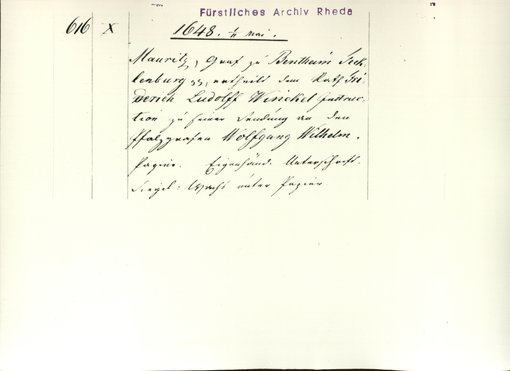 Fürstliches Archiv Rheda
616 X 1648. Mai.
Mauritz, Graf zu Bentheim Teck-
lenburg etc. ertheilt dem Rath Fri-
derich Ludolff Winckel Instruc-
tion zu seiner Sendung an den
Pfalzgrafen Wolfgang Wilhelm.
Papier. Eigenhänd. Unterschrift.
Siegel: Wachs unter Papier